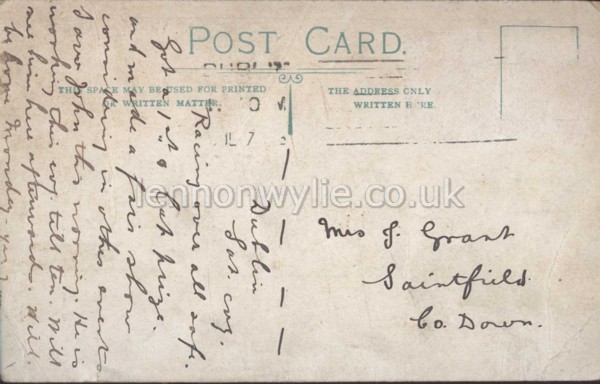 POST CARD.
DUBLIN
THIS SPACE MAY BE USED FOR PRINTED
OR WRITTEN MATTER.
THE ADDRESS ONLY
WRITTEN HERE.
lennonwylie.co.uk
Dublin
Sat. evg.
Racing over all safe.
Got a 1st & last prize.
and made a fair show
considering in other events
I saw John this morning. He is
working this evg. till ten. Will
see him here afterwards. Will
be home Monday evg
Mrs J. Grant
Saintfield.
Co. Down.